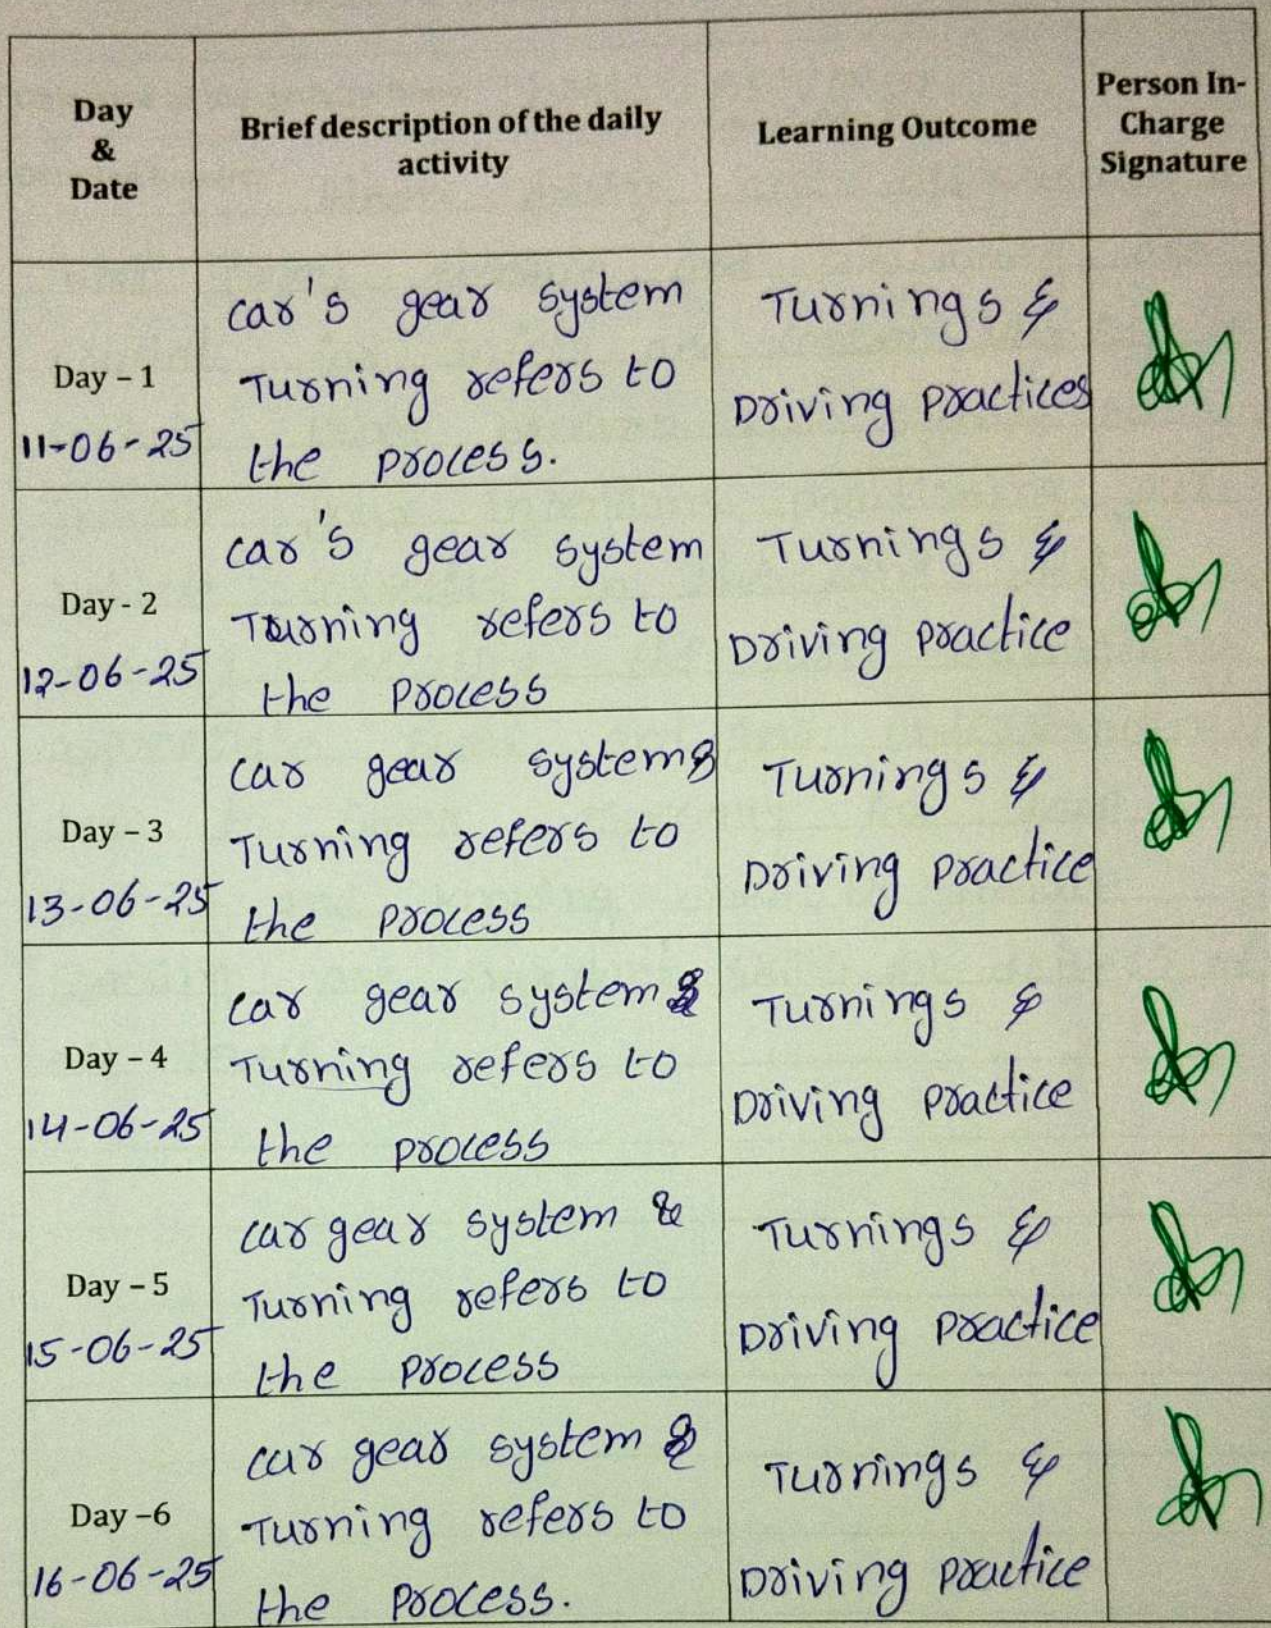 Day
&
Date
Brief description of the daily
activity
Learning Outcome
Person In-
Charge
Signature
Day – 1
11-06-25
car's gear system
Turning refers to
the process.
Turnings &
Driving practices
Day - 2
12-06-25
car's gear system
Turning refers to
the process
Turnings &
Driving practice
Day – 3
13-06-25
car gear system &
Turning refers to
the process
Turnings &
Driving practice
Day – 4
14-06-25
car gear system &
Turning refers to
the process
Turnings &
Driving practice
Day – 5
15-06-25
car gear system &
Turning refers to
the process
Turnings &
Driving practice
Day –6
16-06-25
car gear system &
Turning refers to
the process.
Turnings &
Driving practice